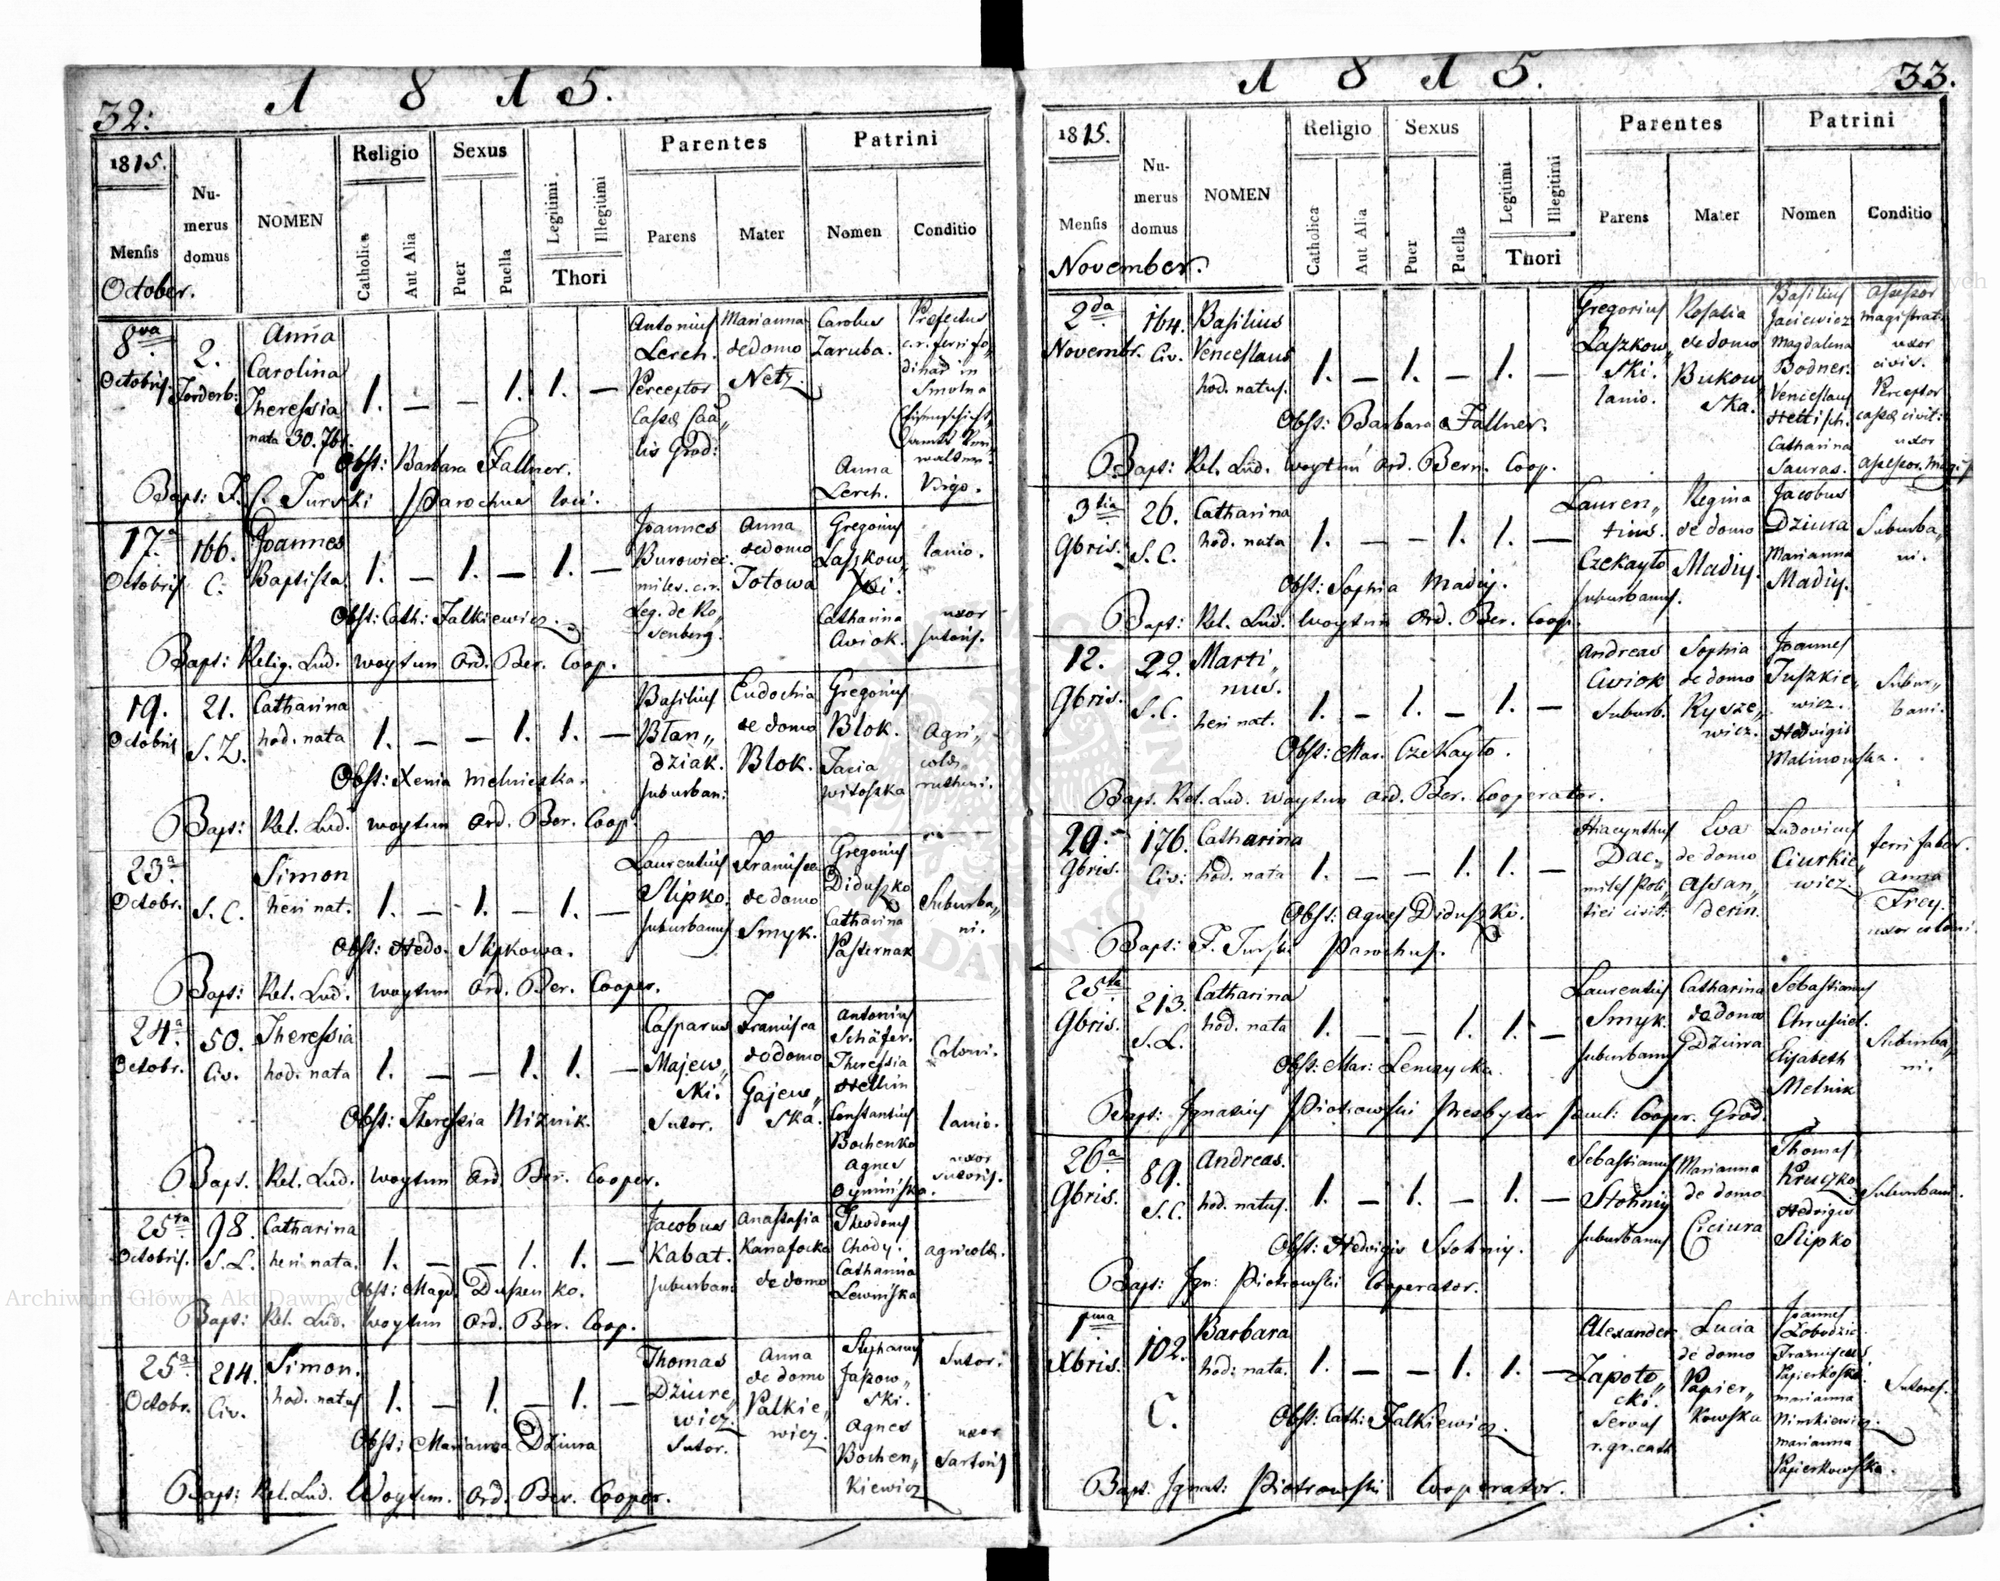 32:
1 8 1 5.
1815.
Mensis
October.
Numerus domus
NOMEN
Religio
Catholica
Aut Alia
Sexus
Puer
Puella
Legitimi
Illegitimi
Thori
Parentes
Parens
Mater
Patrini
Nomen
Conditio
8va Octobris.
2.
Anna
Carolina
Theressia
nata 30. 7br.
1. — — 1. 1. —
Antonius
Lerch.
Perceptor
Marianna
de domo
Netz.
Carolus
Zaruba.
Prefectus
Smolna
Anna
Lerch.
Virgo.
Obst: Barbara Fallner.
Bapt: F. Turski Parochus loci.
17a Octobris
166.
C.
Joannes
Baptista
1. — 1. — 1. —
Joannes
Burowiec.
miles. c. r.
Leg. de Ro„
senberg.
Anna
de domo
Totowa
Gregorius
Laszkow„
ski.
lanio.
Catharina
Cwiok.
uxor
sutoris.
Obst: Cath: Falkiewicz.
Bapt: Relig. Lud. Woytun Ord. Ber. Coop.
19.
Octobris
21.
S. Z.
Catharina
hod. nata
1. — — 1. 1. —
Basilius
Błan„
dziak.
suburban:
Eudochia
de domo
Blok.
Gregorius
Blok.
Agri„
colæ
rutheni.
Obst: Xenia Melniczka.
Bapt: Rel. Lud. Woytun Ord. Ber. Coop.
23a
Octobr.
S. C.
Simon
heri nat.
1. — 1. — 1. —
Laurentius
Slipko.
suburbanus
Francisca
de domo
Smyk.
Gregorius
Diduszko
Catharina
Pasternak
Suburba„
ni.
Obst: Hedv. Slipkowa.
Bapt: Rel. Lud. Woytun Ord. Ber. Cooper.
24a
Octobr.
50.
Civ.
Theressia
hod. nata
1. — — 1. 1. —
Casparus
Majew„
ski.
Sutor.
Francisca
de domo
Gajew„
ska.
Antonius
Schäfer.
Theressia
Coloni.
Constantius
Bochenko
lanio.
Agnes
uxor
sutoris.
Obst: Theressia Niznik.
Bapt. Rel. Lud. Woytun Ord. Ber. Cooper.
25ta
Octobris.
98.
S. L.
Catharina
heri nata.
1. — — 1. 1. —
Jacobus
Kabat.
suburban:
Anastasia
Kanafocka
de domo
Theodorus
Chody.
Catharina
Lewińska
agricolæ.
Obst: Magd. Duszenko.
Bapt: Rel. Lud. Woytun Ord. Ber. Coop.
25a
Octobr.
214.
Civ.
Simon.
hod. natus
1. — 1. — 1. —
Thomas
Dziure„
wicz.
Sutor.
Anna
de domo
Palkie„
wicz.
Stephanus
Jaszow„
ski.
Sutor.
Agnes
Bochen„
kiewicz
uxor
Sartoris
Obst: Marianna Dziura
Bapt: Rel. Lud. Woytun. Ord. Ber. Cooper.
1 8 1 5.
33.
1815.
Mensis
November.
Numerus domus
NOMEN
Religio
Catholica
Aut Alia
Sexus
Puer
Puella
Legitimi
Illegitimi
Thori
Parentes
Parens
Mater
Patrini
Nomen
Conditio
2da
Novembr.
164.
Civ.
Basilius
Venceslaus
hod. natus.
1. — 1. — 1. —
Gregorius
Laszkow„
ski.
lanio.
Rosalia
de domo
Bukow„
ska.
Basilius
Jaciewicz
Magdalena
Bodner.
Venceslaus
Hettisch.
Catharina
Sauras.
assessor
magistrat:
uxor
civis.
Perceptor
cassæ civit:
uxor
assessor. Magis
Obst: Barbara Fallner.
Bapt: Rel. Lud. Woytun Ord. Bern. Coop.
3tia
9bris.
26.
S. C.
Catharina
hod. nata
1. — — 1. 1. —
Lauren„
tius.
Czekayło
suburbanus.
Regina
de domo
Madiy.
Jacobus
Dziura
Marianna
Madiy.
Suburba„
ni.
Obst: Sophia Madiy.
Bapt: Rel. Lud. Woytun Ord. Ber. Coop.
12.
9bris.
22.
S. C.
Marti„
nus.
heri nat.
1. — 1. — 1. —
Andreas
Cwiok
Suburb.
Sophia
de domo
Rysze„
wicz.
Joannes
Juszkie„
wicz.
Hedvigis
Malinowska.
Subur„
bani.
Obst: Mar. Czekayło.
Bapt. Rel. Lud. Woytun Ord. Ber. Cooperator.
20.
9bris.
176.
Civ:
Catharina
hod. nata
1. — — 1. 1. —
Hiacynthus
Dac„
miles Poli„
tici civit:
Eva
de domo
Assan„
derin.
Ludovicus
Ciurkie„
wicz.
ferri faber.
Anna
Frey.
uxor coloni.
Obst: Agnes Diduszko.
Bapt: F. Turski Parochus.
25ta
9bris.
213.
S. L.
Catharina
hod. nata
1. — — 1. 1. —
Laurentius
Smyk.
suburbanus
Catharina
de domo
Dziura
Sebastianus
Chrusciel.
Elisabeth
Melnik
Suburba„
ni.
Obst: Mar: Lemzycka.
Bapt: Ignatius Piotrowski Presbyter Cooper. Grod.
26a
9bris.
89.
S. C.
Andreas.
hod. natus.
1. — 1. — 1. —
Sebastianus
Stohniy
suburbanus
Marianna
de domo
Ciciura
Thomas
Kruczko
Hedvigis
Slipko
Suburbani.
Obst: Hedvigis Stohniy.
Bapt: Ign: Piotrowski Cooperator.
1ma
Xbris.
102.
C.
Barbara
hod: nata.
1. — — 1. 1. —
Alexander
Zapoto„
cki.
Servus
r. gr. cath
Lucia
de domo
Papier„
kowska
Joannes
Franciscus
Marianna
Nimkiewicz.
Marianna
Papierkowska.
Sutores.
Obst: Cath: Falkiewicz.
Bapt. Ignat: Piotrowski Cooperator.
Archiwum Główne Akt Dawnych